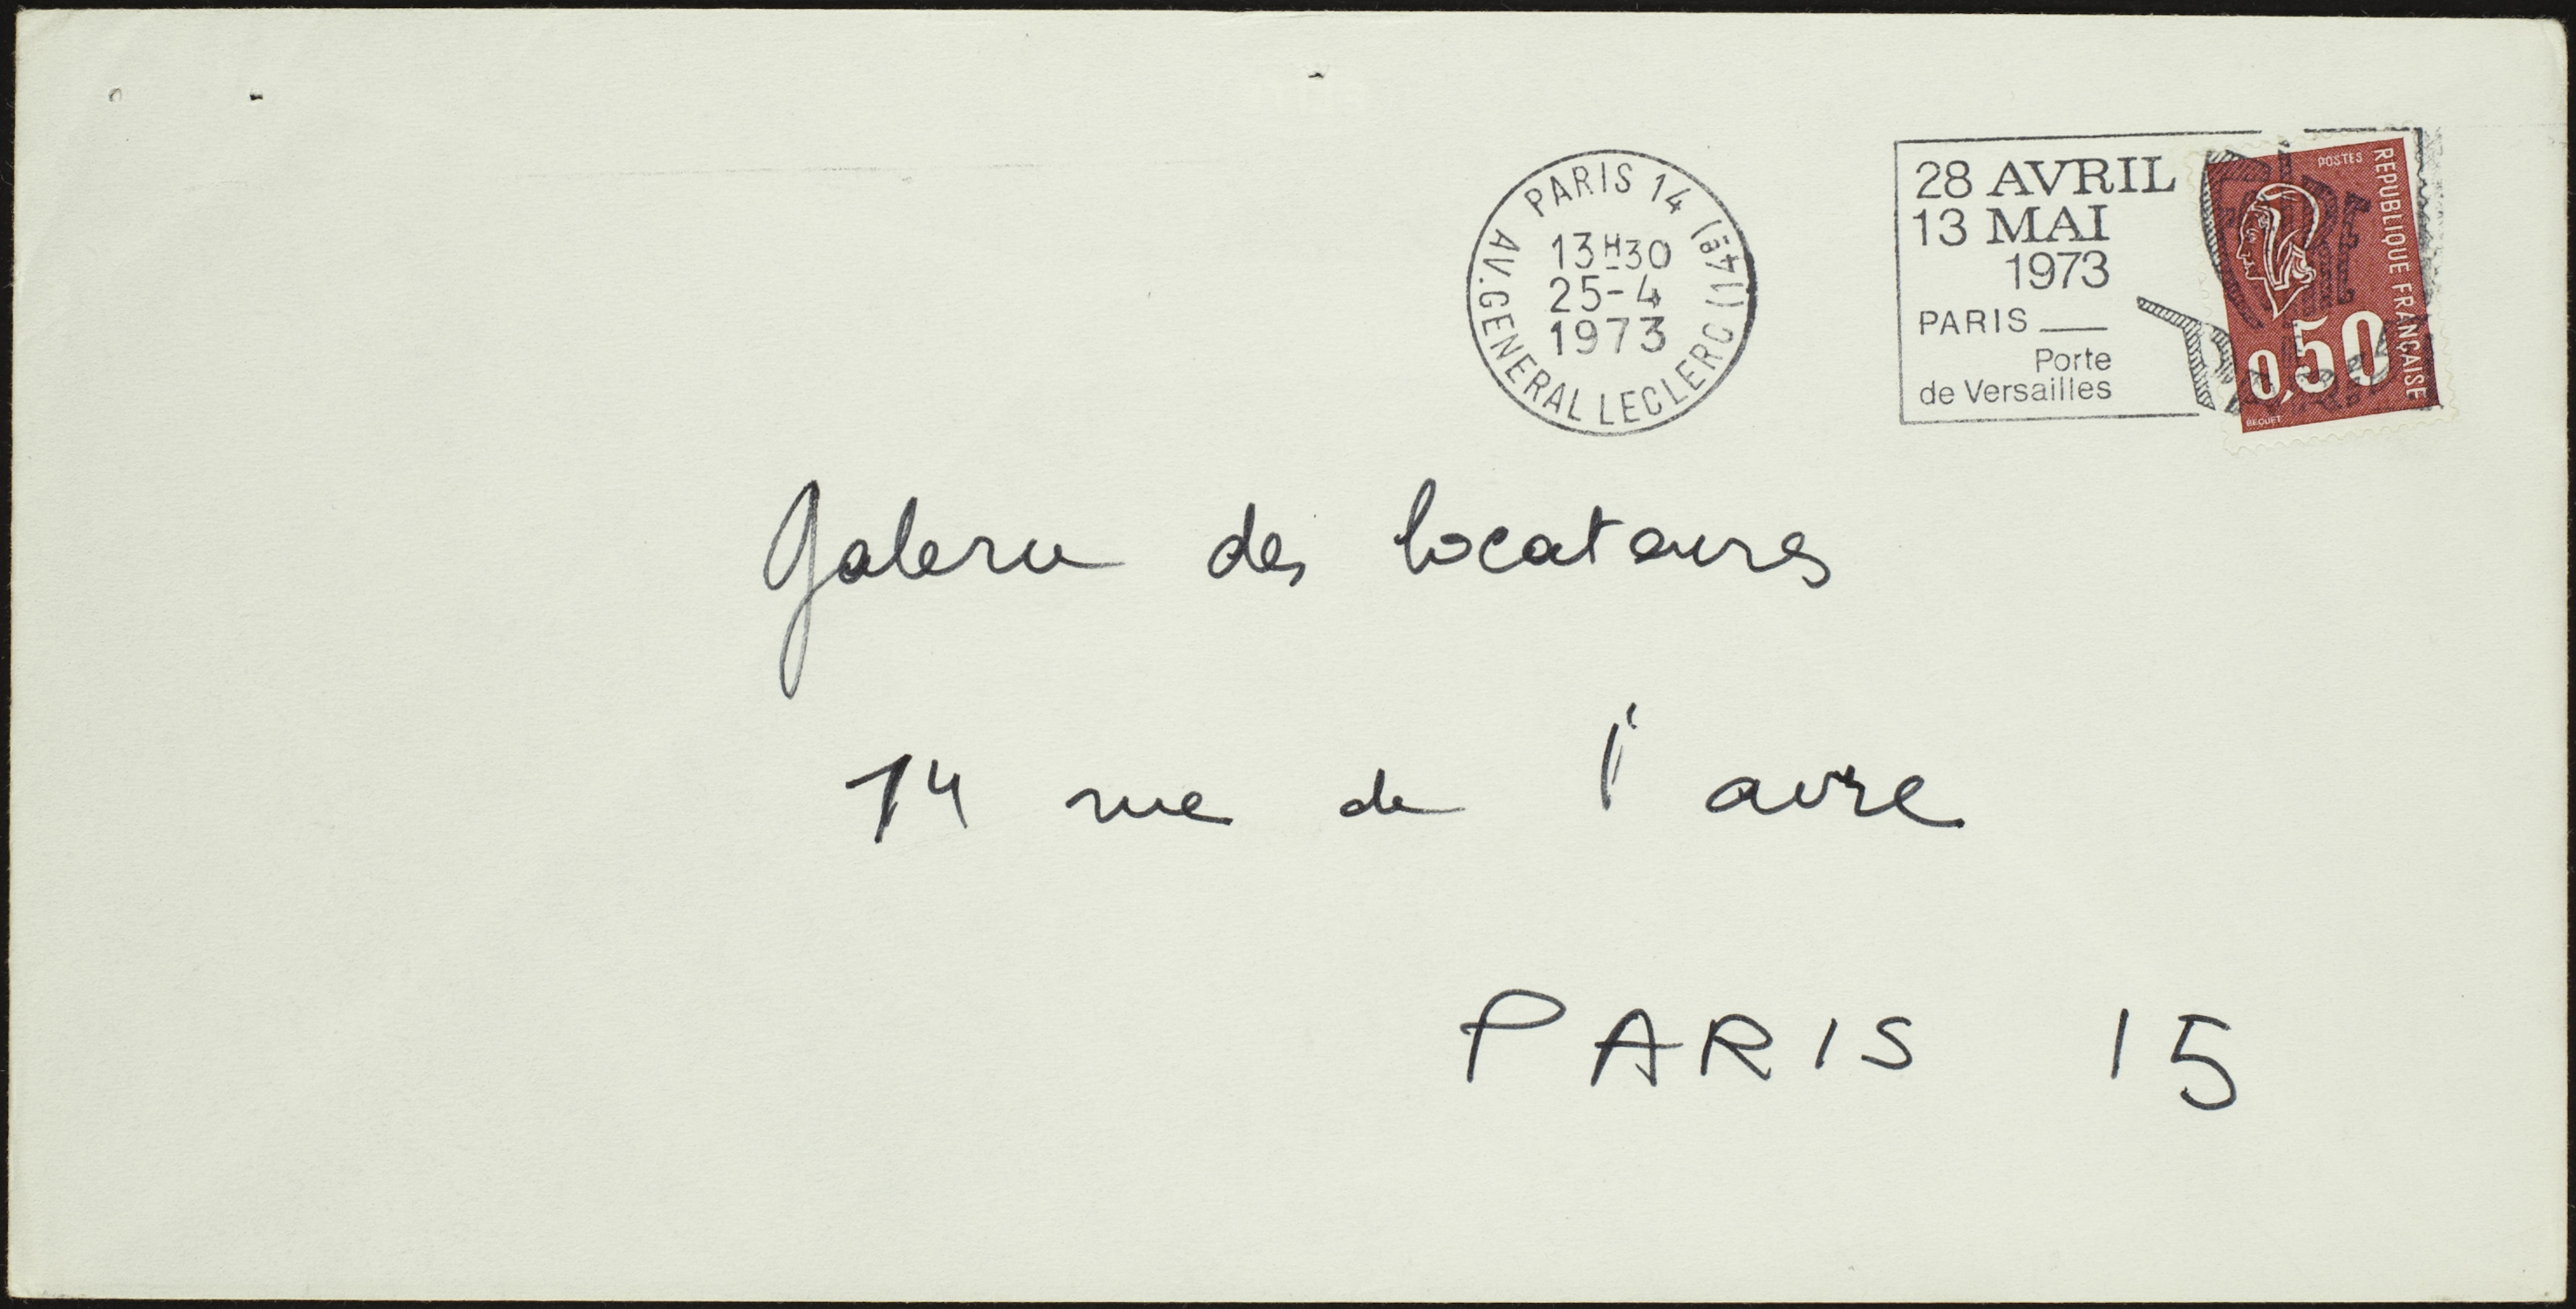 PARIS 14 (14è)
AV. GENERAL LECLERC
13H30
25-4
1973
28 AVRIL
13 MAI
1973
PARIS
Porte
de Versailles
POSTES
REPUBLIQUE FRANÇAISE
0,50
BEQUET
Galerie des locataires
14 rue de l'avre
PARIS 15